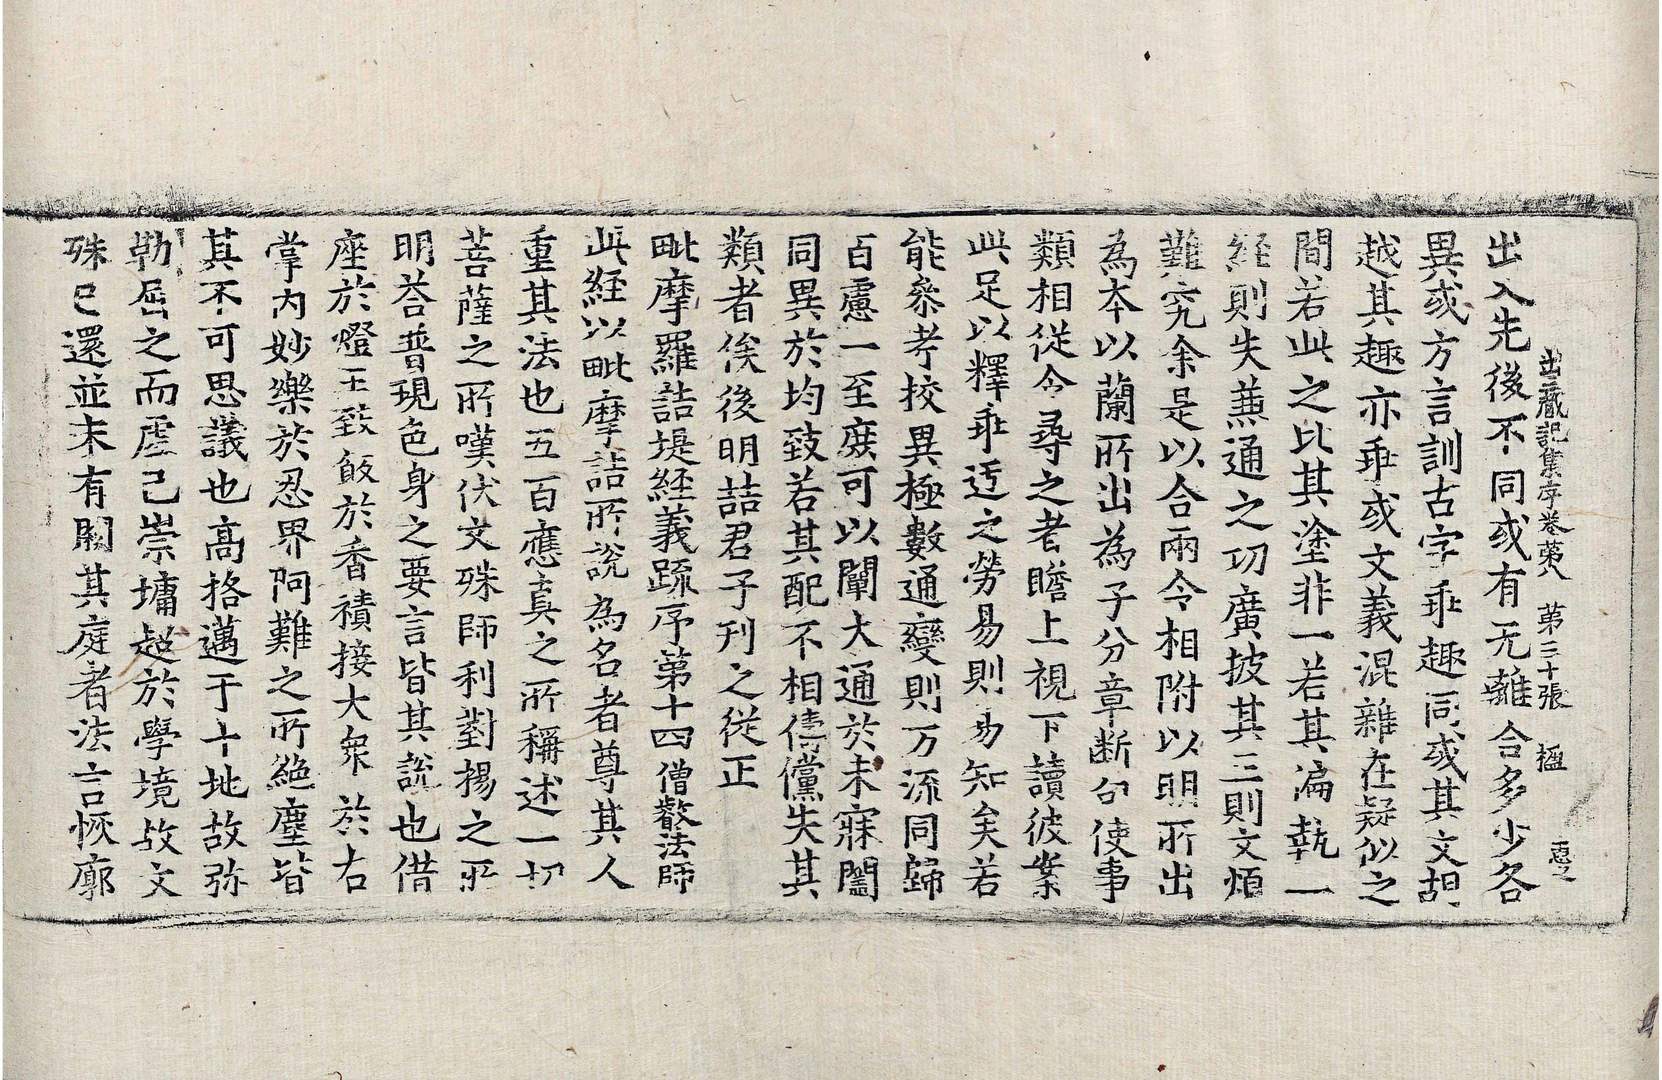 出三藏記集序卷第八　第三十張　楹　惠之
出入先後不同或有无離合多少各
異或方言訓古字乖趣同或其文胡
越其趣亦乖或文義混雜在疑似之
間若此之比其塗非一若其徧執一
経則失兼通之功廣披其三則文煩
難究余是以合兩令相附以明所出
為本以蘭所出為子分章断句使事
類相従令尋之者瞻上視下讀彼案
此足以釋乖迃之勞易則易知矣若
能参考挍異極數通變則万流同歸
百慮一至庶可以闡大通於未寤闔
同異於均致若其配不相儔儻失其
類者俟後明喆君子刊之従正
毗摩羅詰堤経義䟽序第十四僧叡法師
此経以毗摩詰所説為名者尊其人
重其法也五百應真之所稱述一切
菩薩之所嘆伏文殊師利對揚之所
明荅普現色身之要言皆其説也借
座於燈王致飯於香積接大衆於右
掌内妙樂於忍界阿難之所絶塵皆
其不可思議也高格邁于十地故弥
勒屈之而虚己崇墉超於學境故文
殊已還並未有闚其庭者法言恢廓